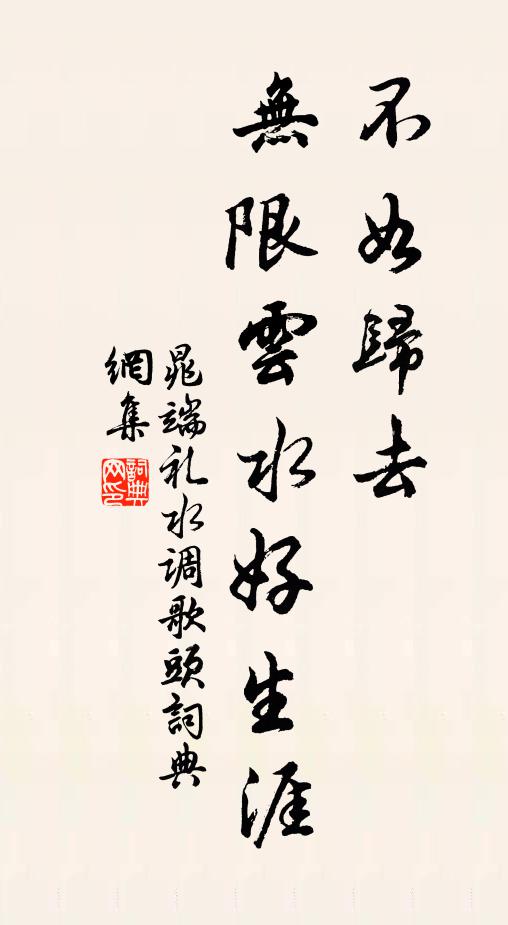 不如歸去
無限雲水好生涯
晁端礼水调歌頭詞典
網集
詞典網印